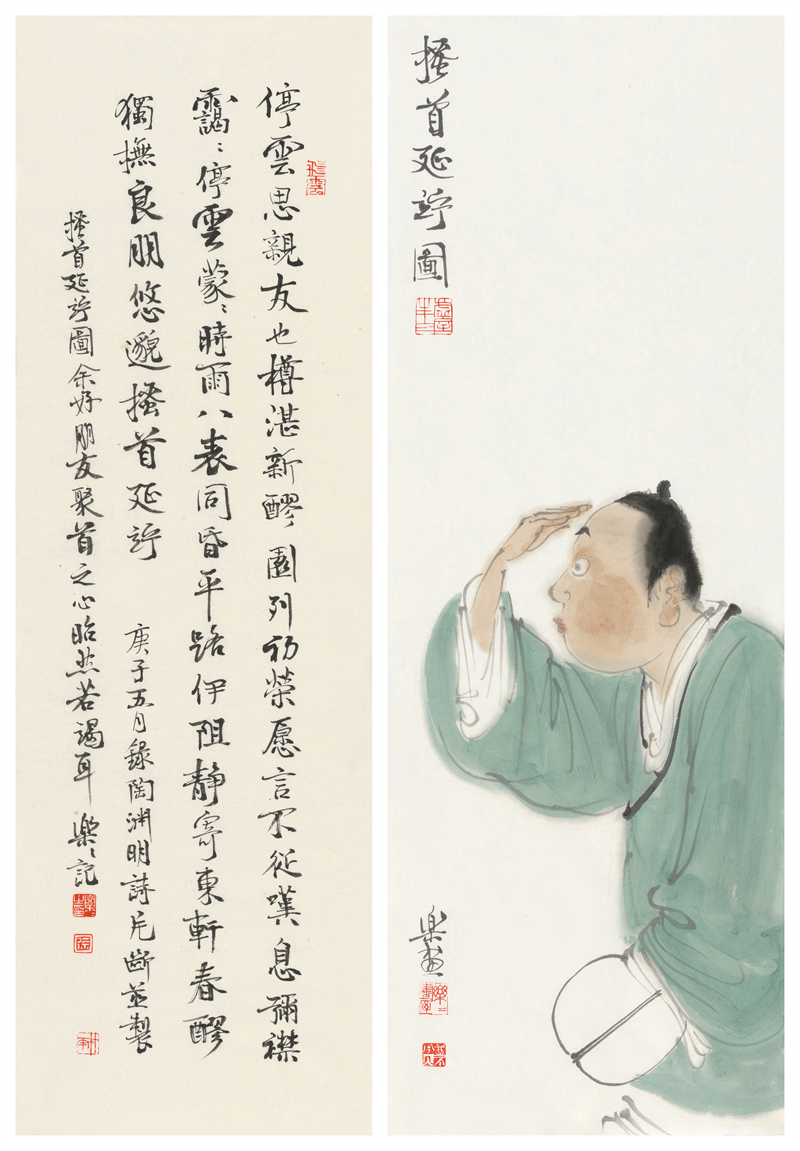 停雲思親友也樽湛新醪園列初榮愿言不從嘆息彌襟
靄〻停雲蒙〻時雨八表同昏平路伊阻靜寄東軒春醪
獨撫良朋悠邈搔首延竚
庚子五月錄陶淵明詩片斷並製
搔首延竚圖余好朋友聚首之心昭然若謁耳樂〻記
搔首延竚圖
樂畫